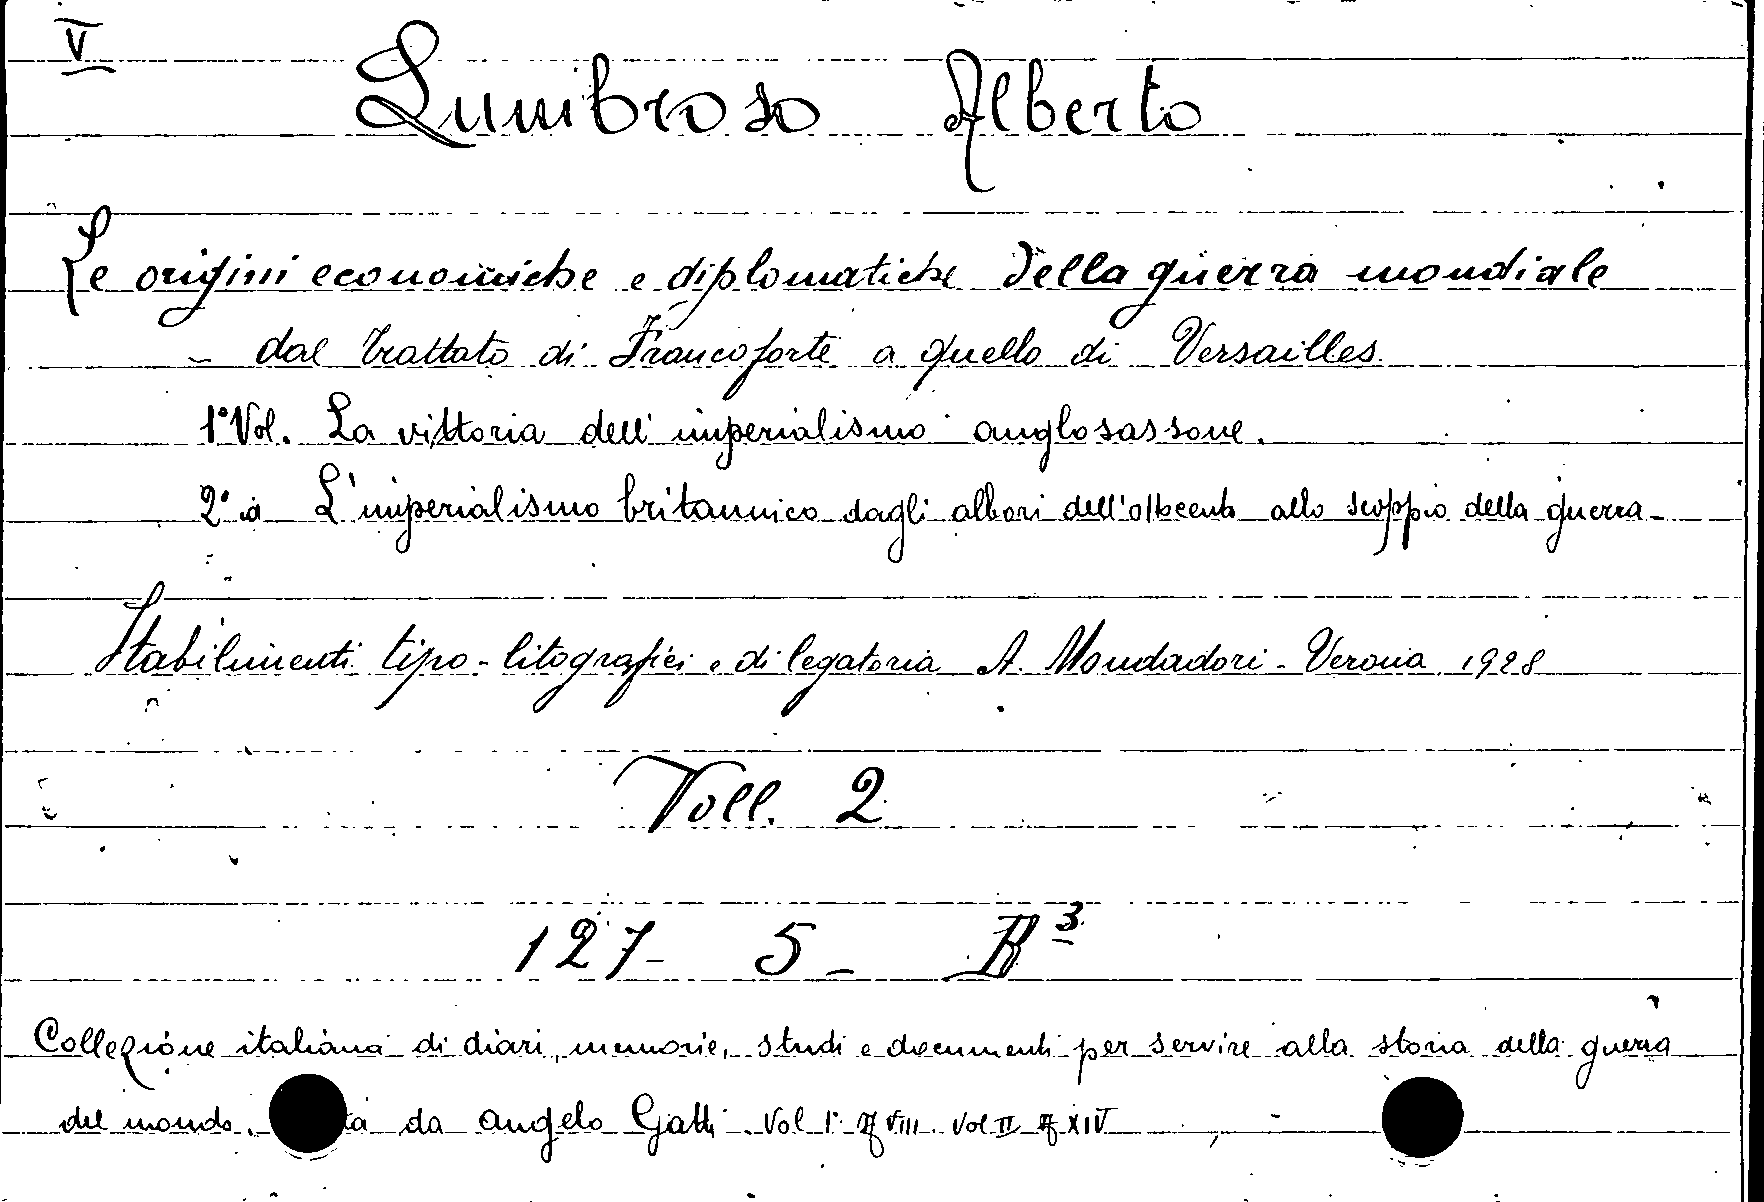 V
Lumbroso Alberto
Le origini economiche e diplomatiche della guerra mondiale
- dal trattato di Francoforte a quello di Versailles.
1° Vol. La vittoria dell'imperialismo anglosassone.
2° " L'imperialismo britannico dagli albori dell'ottocento allo scoppio della guerra -
Stabilimenti tipo-litografici e di legatoria A. Mondadori - Verona 1928
Voll. 2
127 - 5 - B³
Collezione italiana di diari, memorie, studi e documenti per servire alla storia della guerra
del mondo. da Angelo Gatti. Vol I° VIII. Vol II XIV